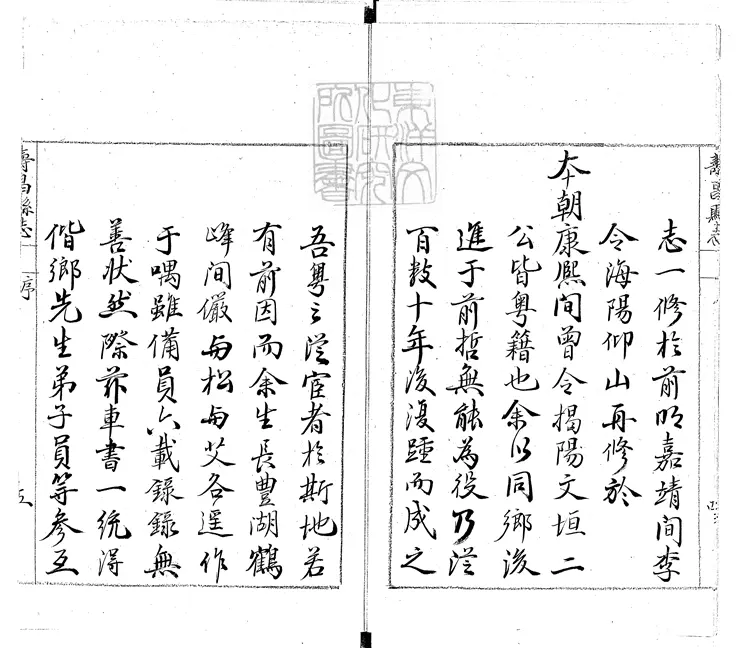 志一修於前明嘉靖間李
令海陽仰山再修於
本朝康熙間曾令揭陽文垣二
公皆粵籍也余以同鄉後
進于前哲無能為役乃從
百數十年後復踵而成之
吾粵之從宦者於斯地若
有前因而余生長豐湖鶴
峰間儼與松與艾各遥作
于喁雖備員六載錄錄無
善狀然際茲車書一統得
偕鄉先生弟子員等參互
壽昌縣志
序
五
壽昌縣志
四
東洋文
化研究
所圖書